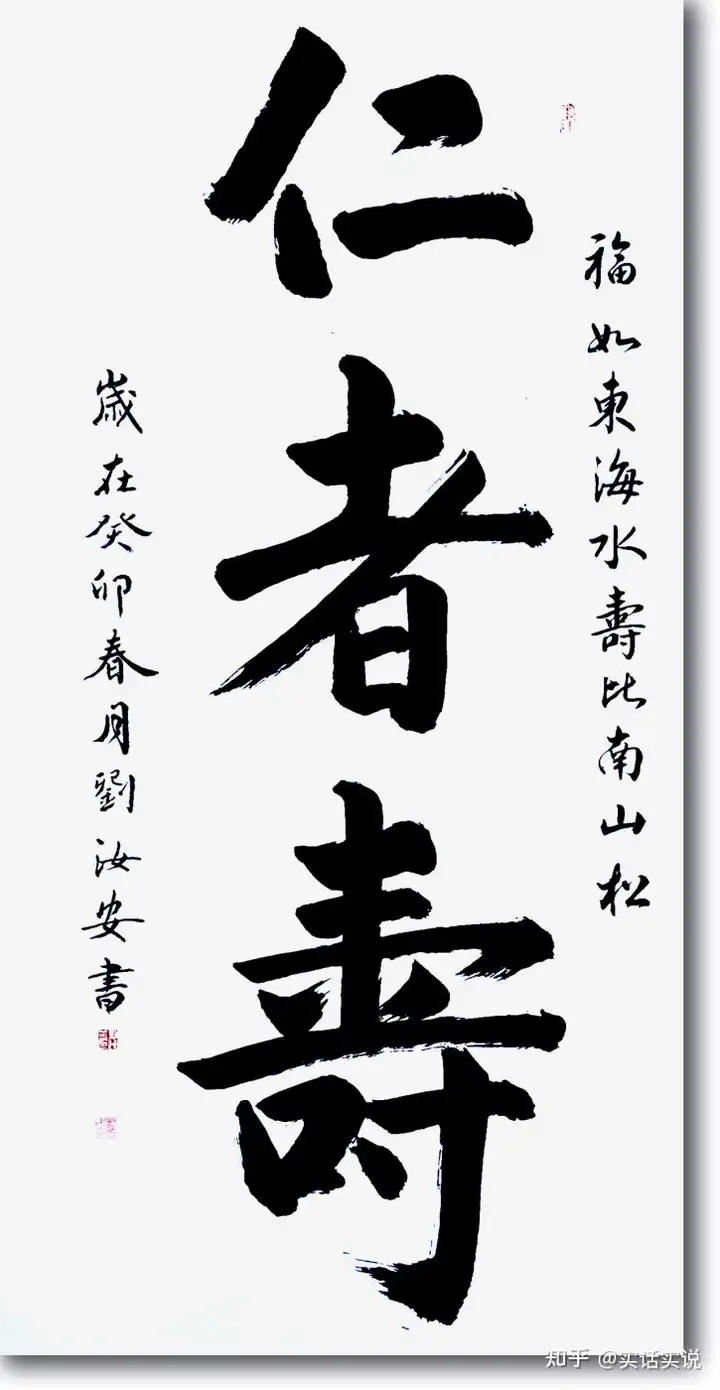 福如東海水壽比南山松
仁者壽
歲在癸卯春月劉汝安書
知乎 @实话实说